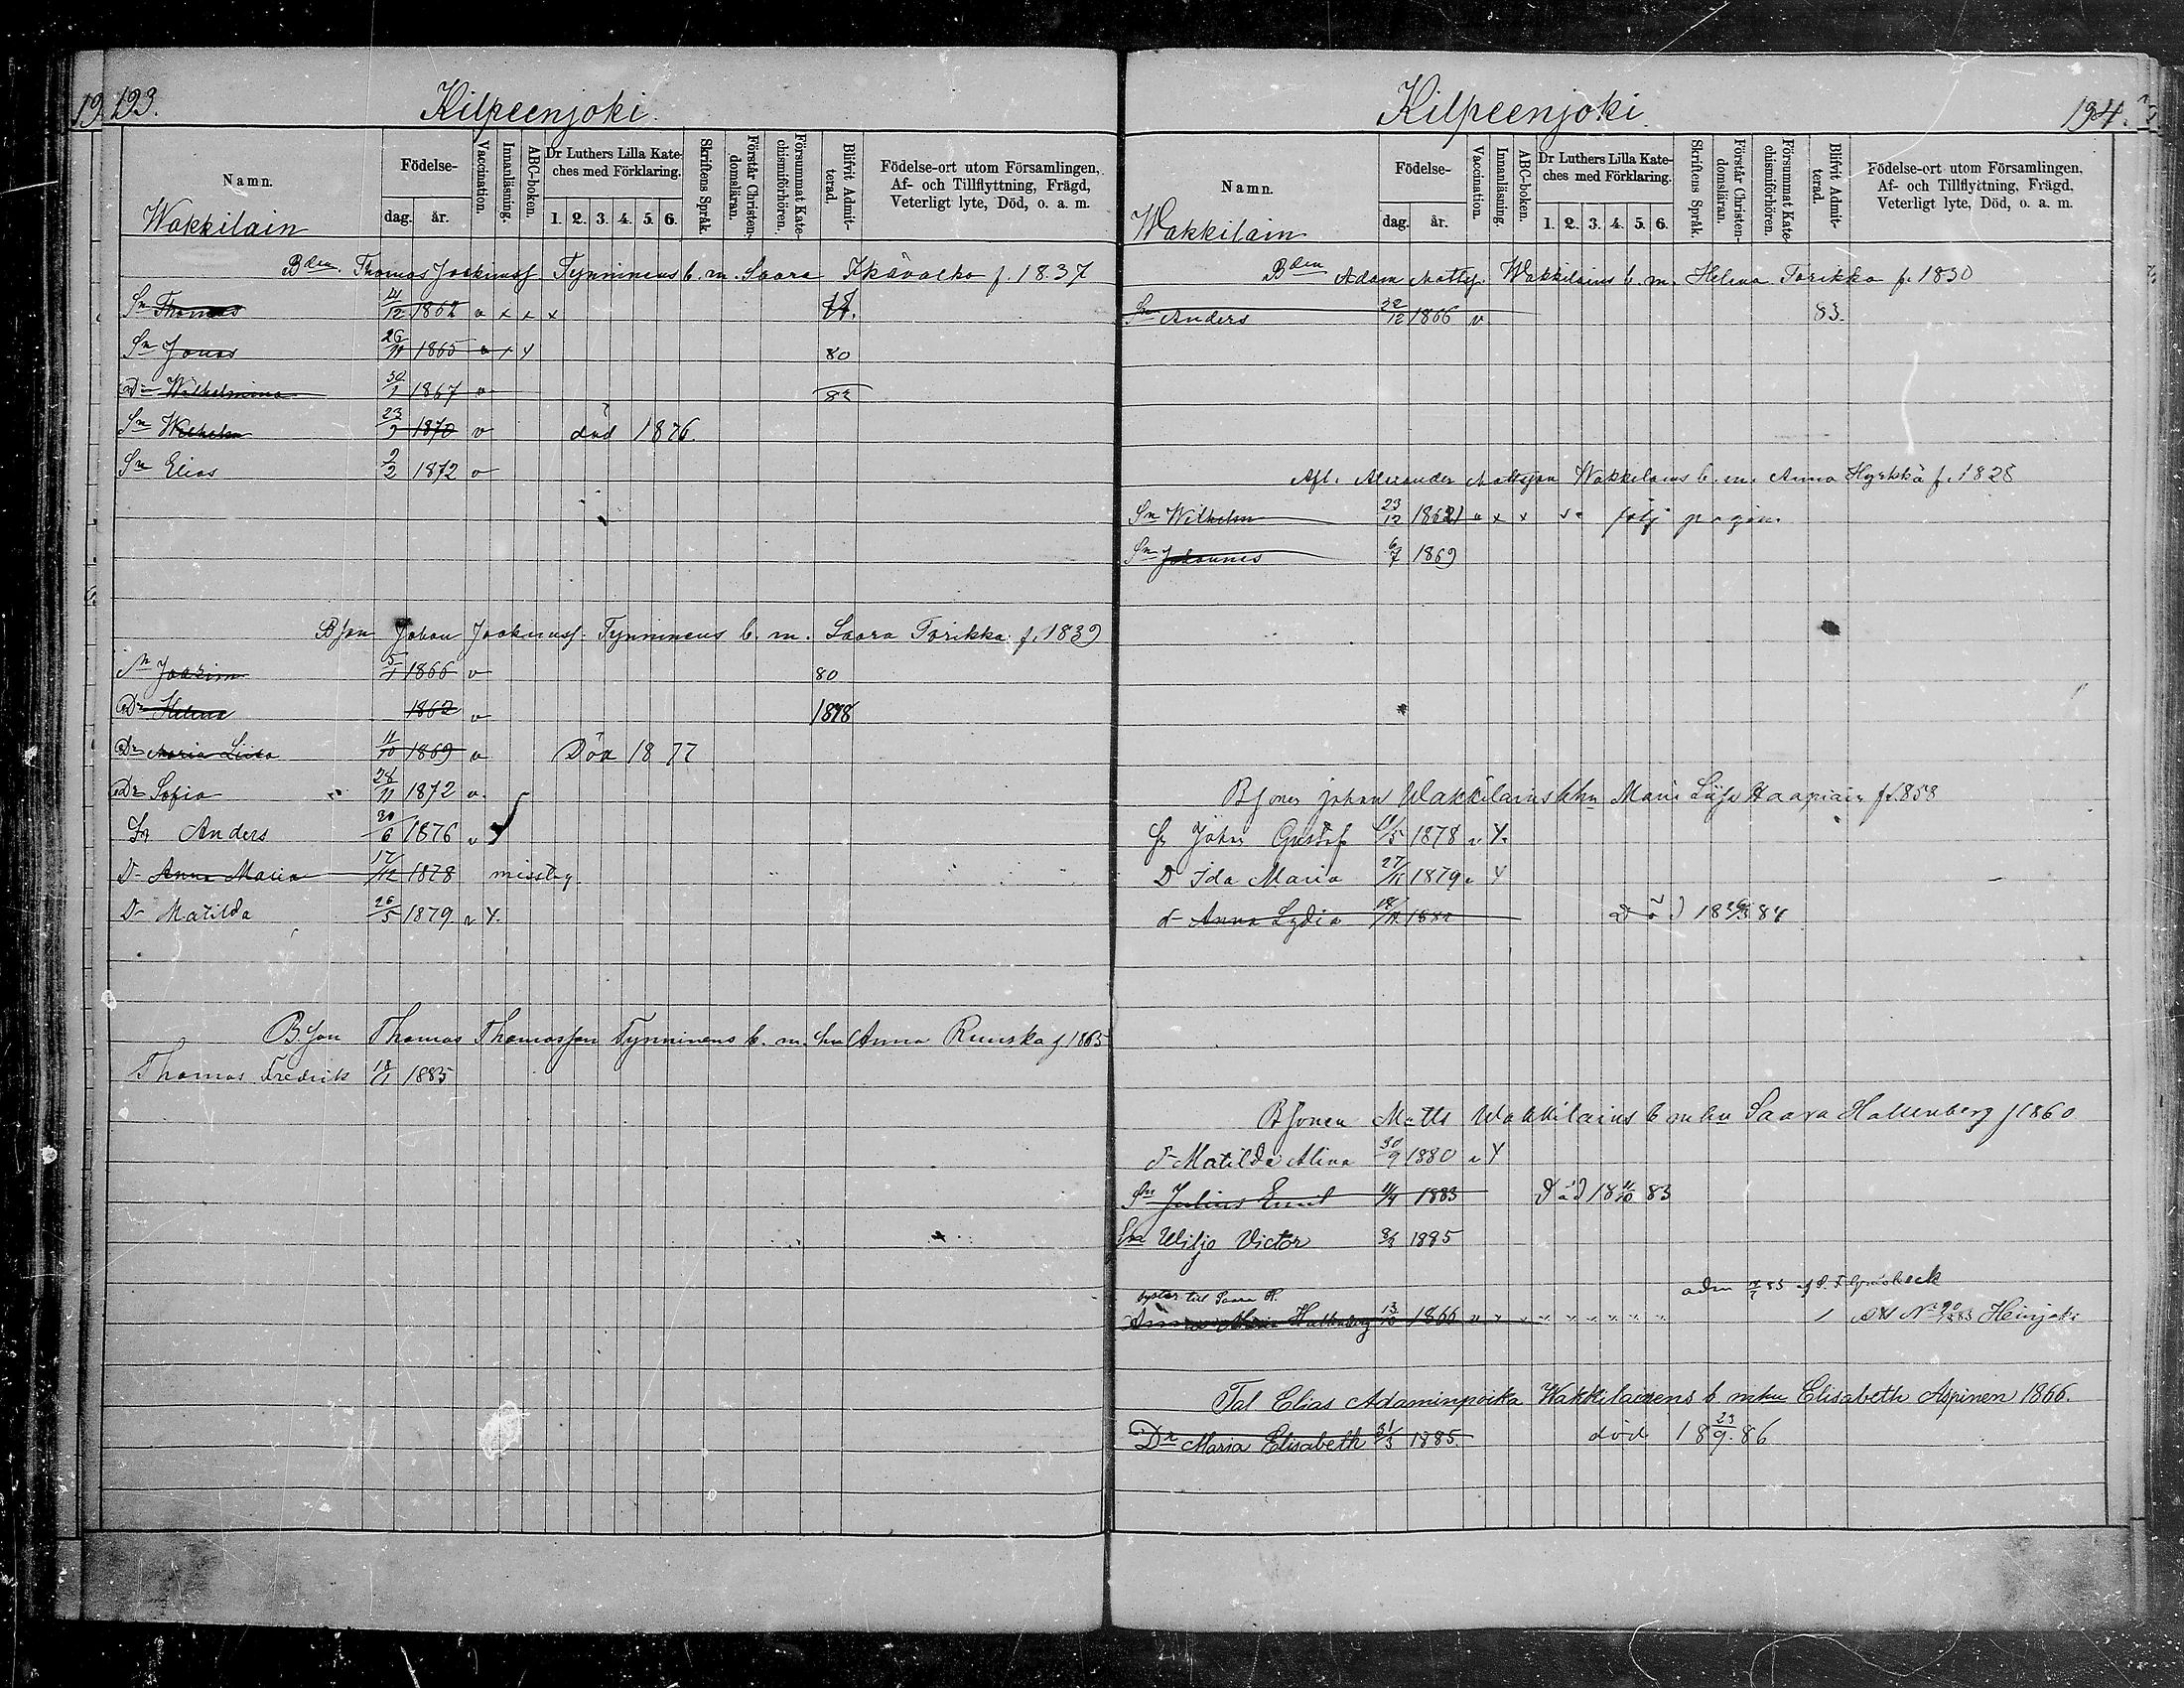 193.
Kilpeenjoki.
Namn.
Födelse-
dag.
år.
Vaccination.
Innanläsning.
ABC-boken.
Dr Luthers Lilla Kate-
ches med Förklaring.
1. 2. 3. 4. 5. 6.
Skriftens Språk.
Förstår Christen-
domsläran.
Försummat Kate-
chismiförhören.
Blifvit Admit-
terad.
Födelse-ort utom Församlingen,
Af- och Tillflyttning, Frägd,
Veterligt lyte, Död, o. a. m.
Wakkilain
Bden Thomas Joakimsf Tynninens b. m. Saara f. 1837
Sn Thomas 1862 v x x x
Sn Jonas 26/11 1865 v x y 80
Dr Wilhelmina 30/1 1867 v 83
Sn Wilhelm 23/3 1870 v död 1876.
Sn Elias 2/2 1872 v
Bson Johan Joakimsf. Tynninens b. m. Saara Torikka f. 1839
Sn Joakim 5/1 1866 v 80
Dr Helena 1862 v 1878
Dr Maria Liisa 11/10 1869 v Död 1877
Dr Sofia 28/11 1872 v.
Sn Anders 30/6 1876 v
Dr Anna Maria 17/12 1878 misstag.
Dr Matilda 26/5 1879 v y.
Bson Thomas Thomasson Tynninens b. m. hu Anna Ruuska f 1865
Thomas Fredrik 18/1 1885
Kilpeenjoki
194.
Namn.
Födelse-
dag.
år.
Vaccination.
Innanläsning.
ABC-boken.
Dr Luthers Lilla Kate-
ches med Förklaring.
1. 2. 3. 4. 5. 6.
Skriftens Språk.
Förstår Christen-
domsläran.
Försummat Kate-
chismiförhören.
Blifvit Admit-
terad.
Födelse-ort utom Församlingen,
Af- och Tillflyttning, Frägd,
Veterligt lyte, Död, o. a. m.
Wakkilain
Bden Adam Mattsf. Wakkilains b. m. Helena Torikka f. 1830
Sn Anders 1866 v 83.
Afl. Alexander Mattsson Wakkilains b. m. Anna Hyrkkä f. 1828
Sn Wilhelm 23/12 1862 v x x följ pagina
Sn Johannes 6/7 1869
Bsones Johan Wakkilains b hu Maria Liisa Haapiain f 1858
Sn Johan Gustaf 11/5 1878 v y.
D Ida Maria 27/11 1879 v y
d Anna Lydia död 84
Bsonen Matts Wakkilains b m hu Saara Hallenberg f 1860
Dr Matilda Alina 30/9 1880 v y
Sn Julius Emil 11/4 1883 död 18 11/10 83
Sn Wiljo Victor 1885
syster till Saara H.
Anna Maria Hallenberg 13/10 1866 v v
adm 83 af
Att No 90/1883 Heinjoki
Tal Elias Adaminpoika Wakkilainens b m hu Elisabeth Aspinen 1866.
Dr Maria Elisabeth 31/3 1885. död 18 23/9. 86